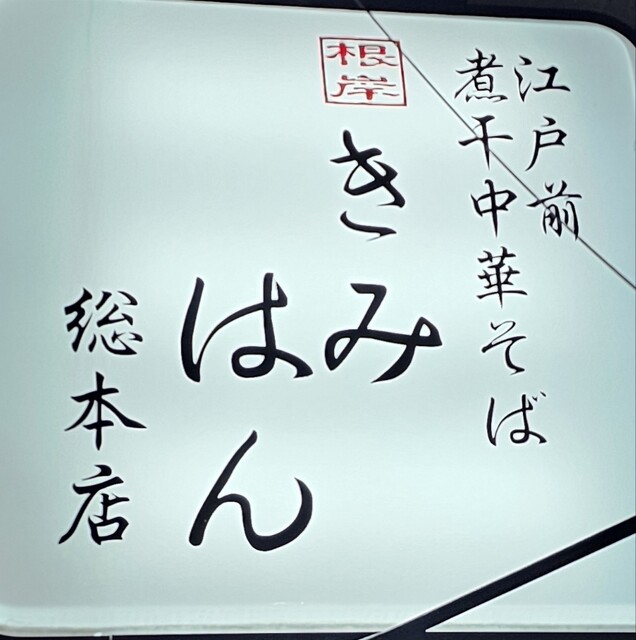 江戸前
煮干中華そば
根岸
きみ
はん
総本店